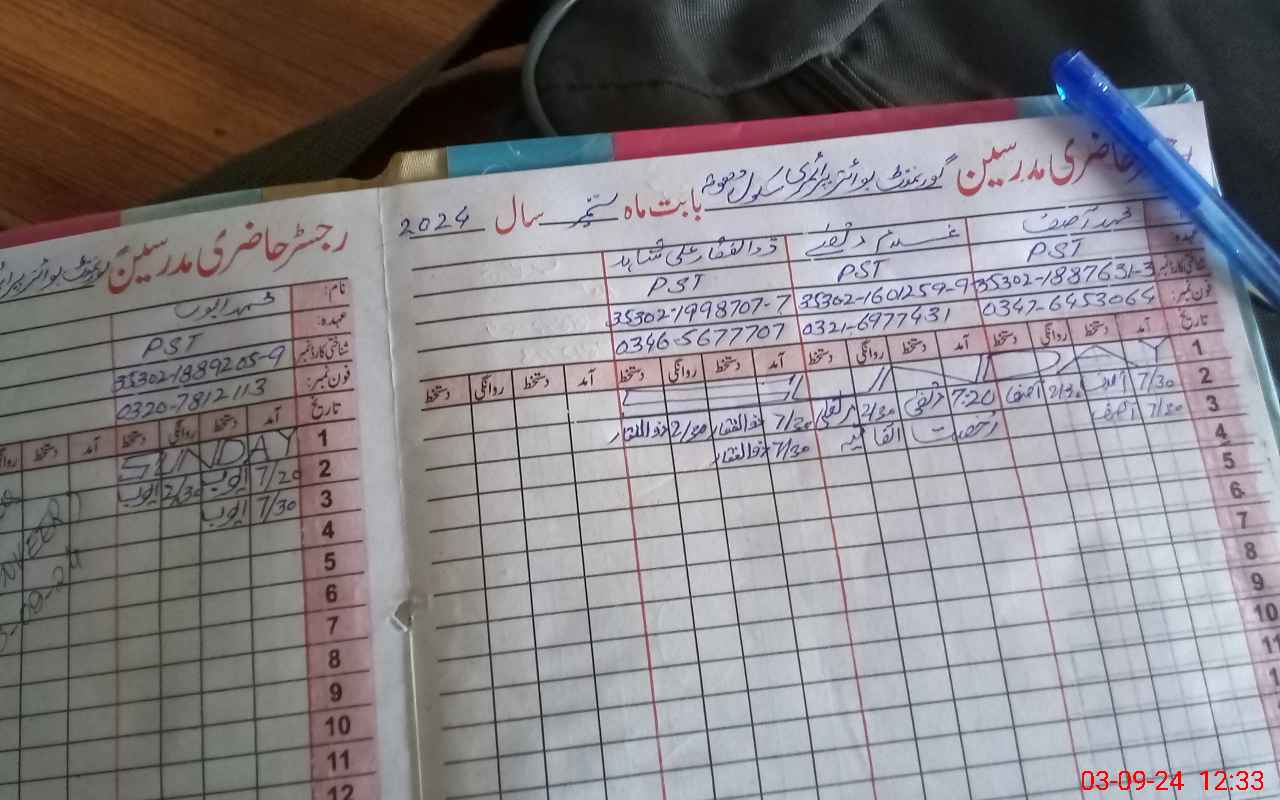 رجسٹر حاضری مدرسین گورنمنٹ بوائز پرائمری سکول بابت ماہ ستمبر سال 2024
محمد آصف غلام ذوالفقار علی شاہد
عہدہ PST PST PST
شناختی کارڈ نمبر 35302-1887631-3 35302-1601259-9 35302-1998707-7
فون نمبر: 0347-6453064 0321-6977431 0346-5677707
تاریخ آمد دستخط روانگی دستخط آمد دستخط روانگی دستخط آمد دستخط روانگی دستخط آمد دستخط روانگی دستخط
1
2 7/30 آصف 2/30 آصف 7:20 2/30 7/30 ذوالفقار 2/30 ذوالفقار
3 7/30 آصف رخصت اتفاقیہ 7/30 ذوالفقار
4
5
6
7
8
9
10
11
رجسٹر حاضری مدرسین گورنمنٹ بوائز
نام: محمد ایوب
عہدہ: PST
شناختی کارڈ نمبر 35302-1889205-9
فون نمبر: 0320-7812113
تاریخ آمد دستخط روانگی دستخط آمد دستخط
1 SUNDAY
2 7/20 ایوب 2/30 ایوب
3 7/30 ایوب
4
5
6
7
8
9
10
11
12
03-09-24 12:33